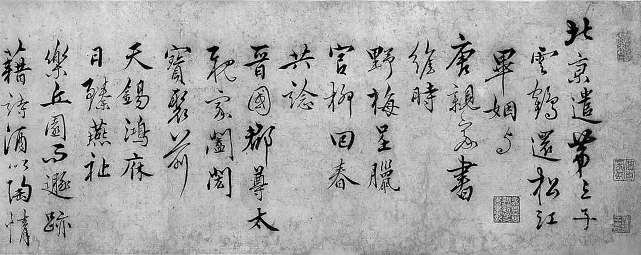 北京遣第三子
雲鶴還松江
畢姻與
唐親家書
維時
野梅呈臘
官柳回春
共諗
晉國郡尊太
親家
寶
天錫鴻庥
日臻燕祉
樂丘園而遯跡
藉詩酒以陶情